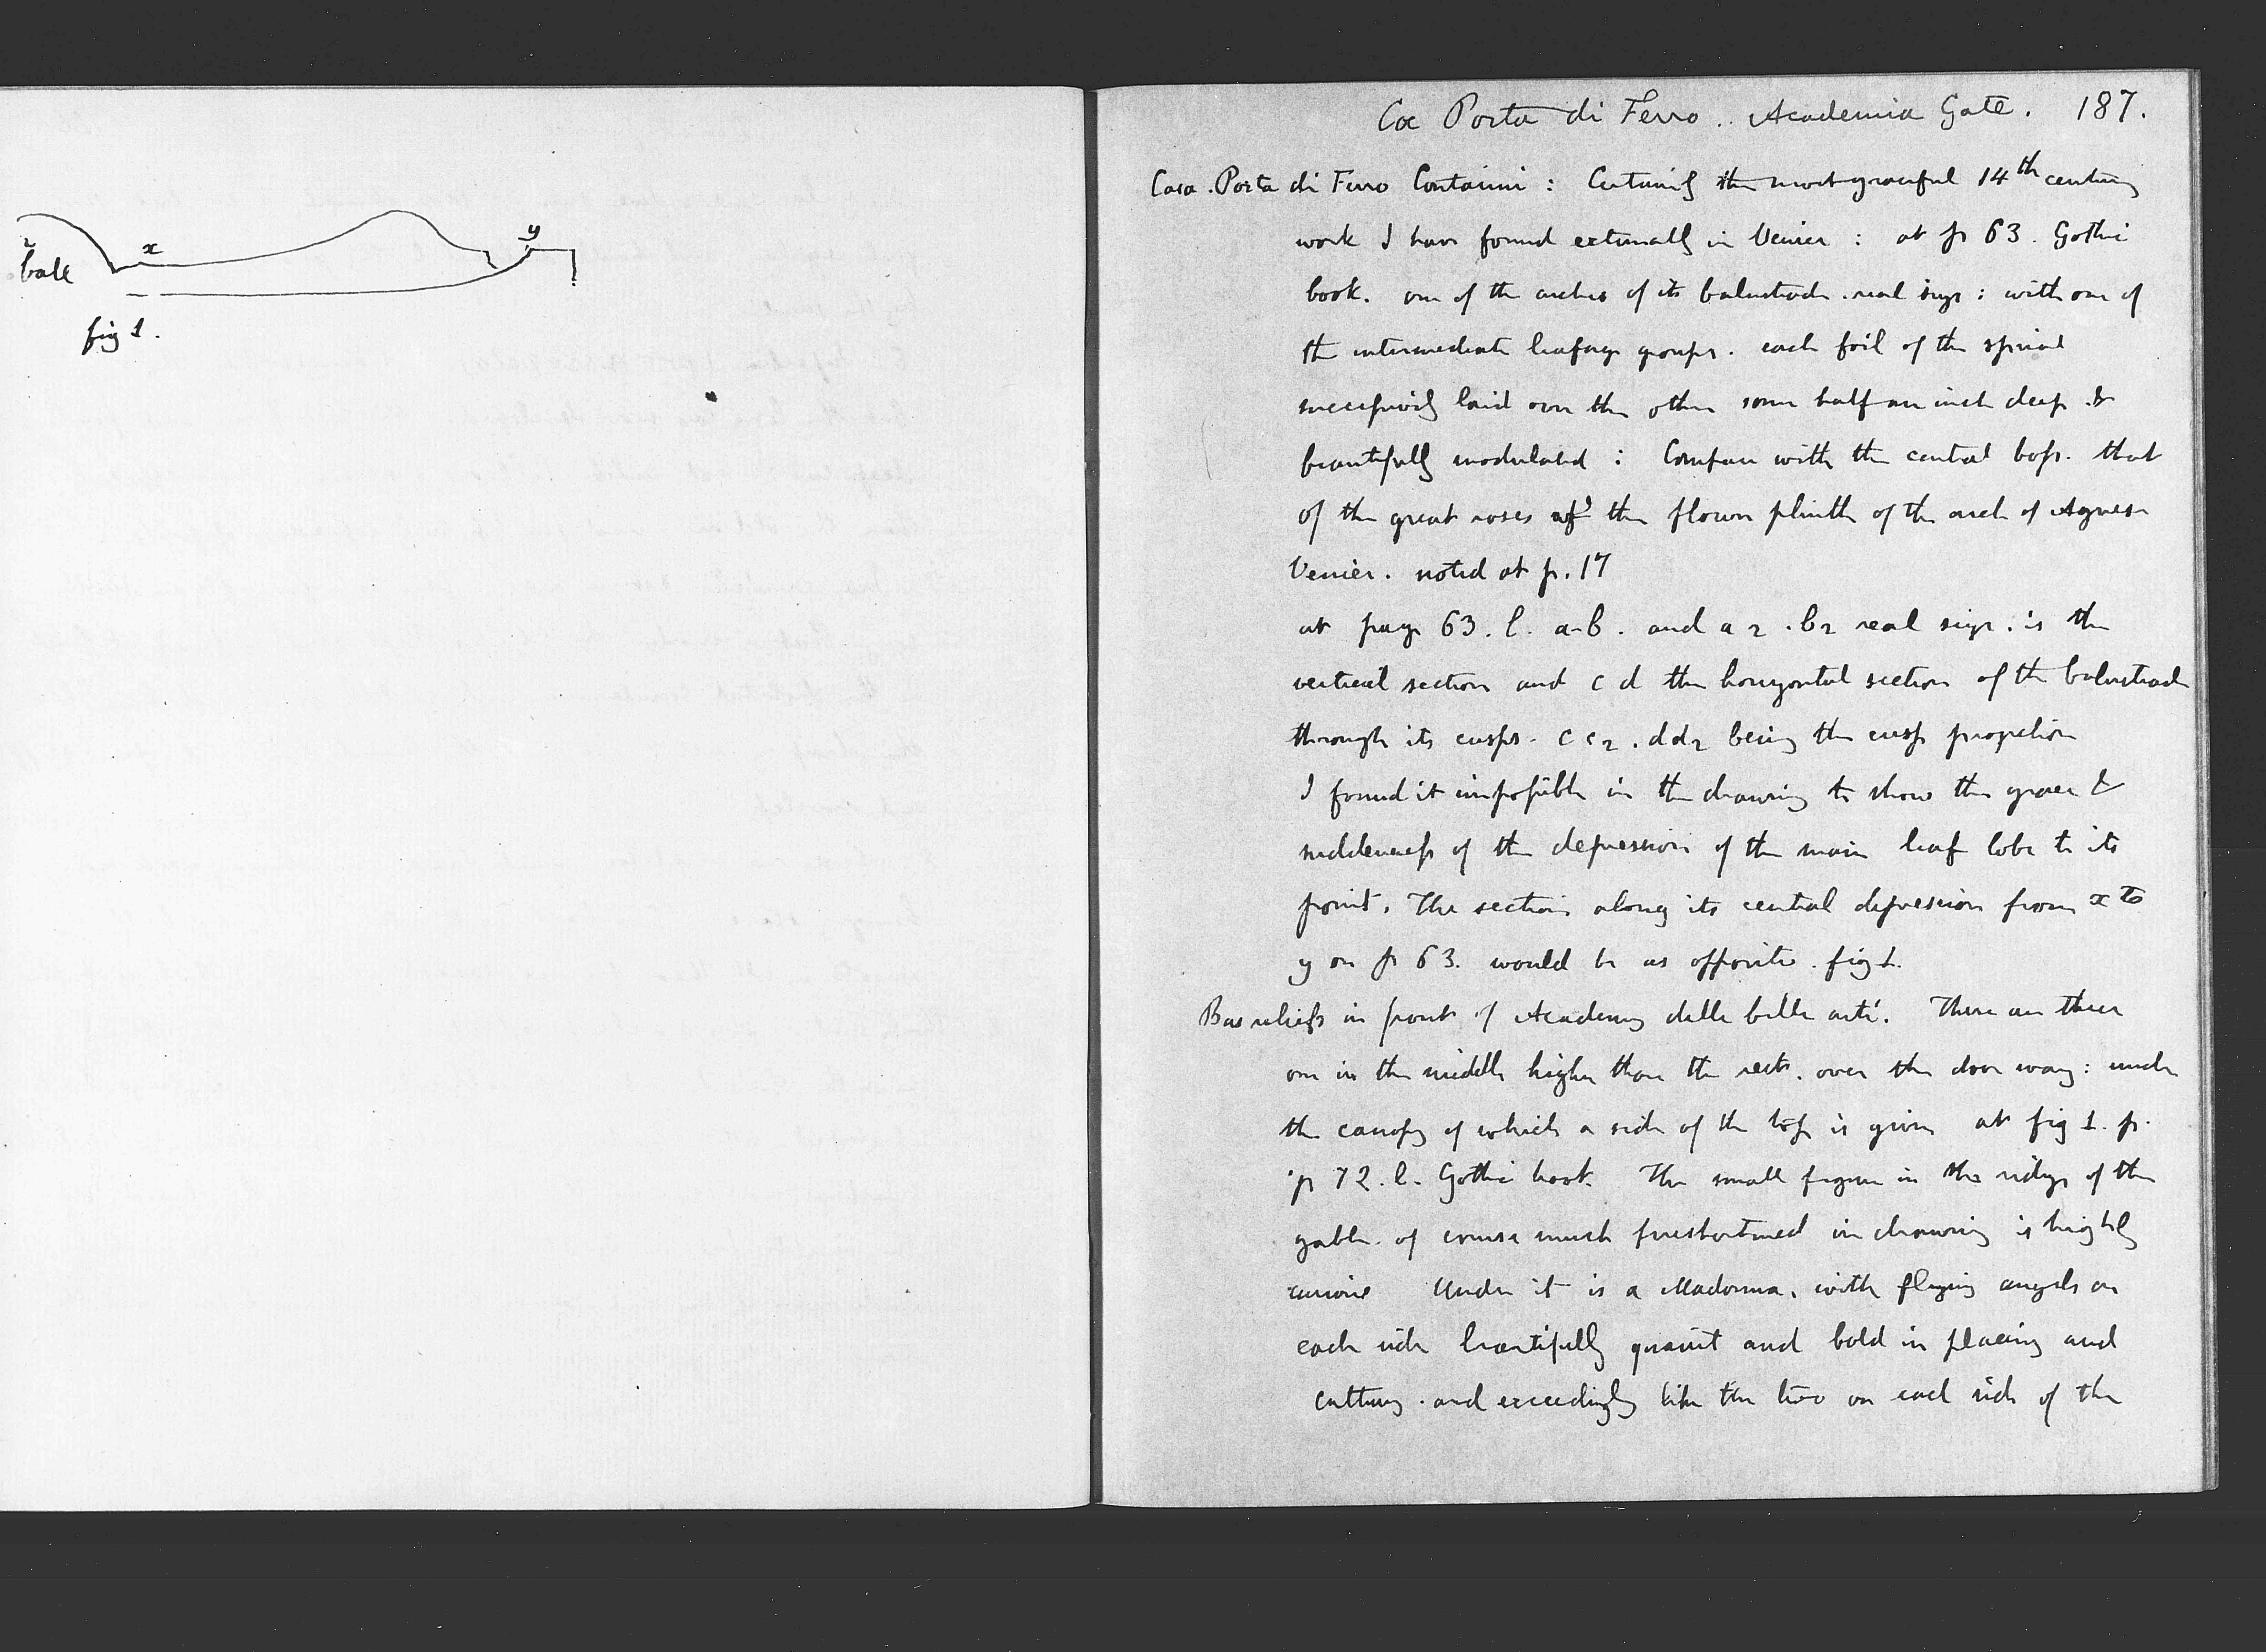 ball
x
y
fig 1.
Ca Porta di Ferro.. Academia Gate. 187.
Casa. Porta di Ferro Contarini: Certainly the most graceful 14th century
work I have found externally in Venice: at p 63. Gothic
book. one of the arches of its balustrade. real size: with one of
the intermediate leafage groups. each foil of the spiral
successively laid over the other some half an inch deep &
beautifully modulated: Compare with the central boss. that
of the great roses of the flower plinth of the arch of Agnese
Venier. noted at p. 17
at page 63. l. a-b. and a 2. b2 real size. is the
vertical section and c d the horizontal section of the balustrade
through its cusps. c c2. d d2 being the cusp projection
I found it impossible in the drawing to show the grace &
suddenness of the depression of the main leaf lobe to its
point. The section along its central depression from x to
y on p 63. would be as opposite. fig 1.
Bas reliefs in front of Academy delle belle arti. There are three
one in the middle higher than the rest. over the door way: under
the canopy of which a side of the top is given at fig 1. p.
p 72. l. Gothic book. The small figure in the ridge of the
gable. of course much foreshortened in drawing is highly
curious Under it is a Madonna. with flying angels on
each side beautifully quaint and bold in placing and
cutting. and exceedingly like the two on each side of the